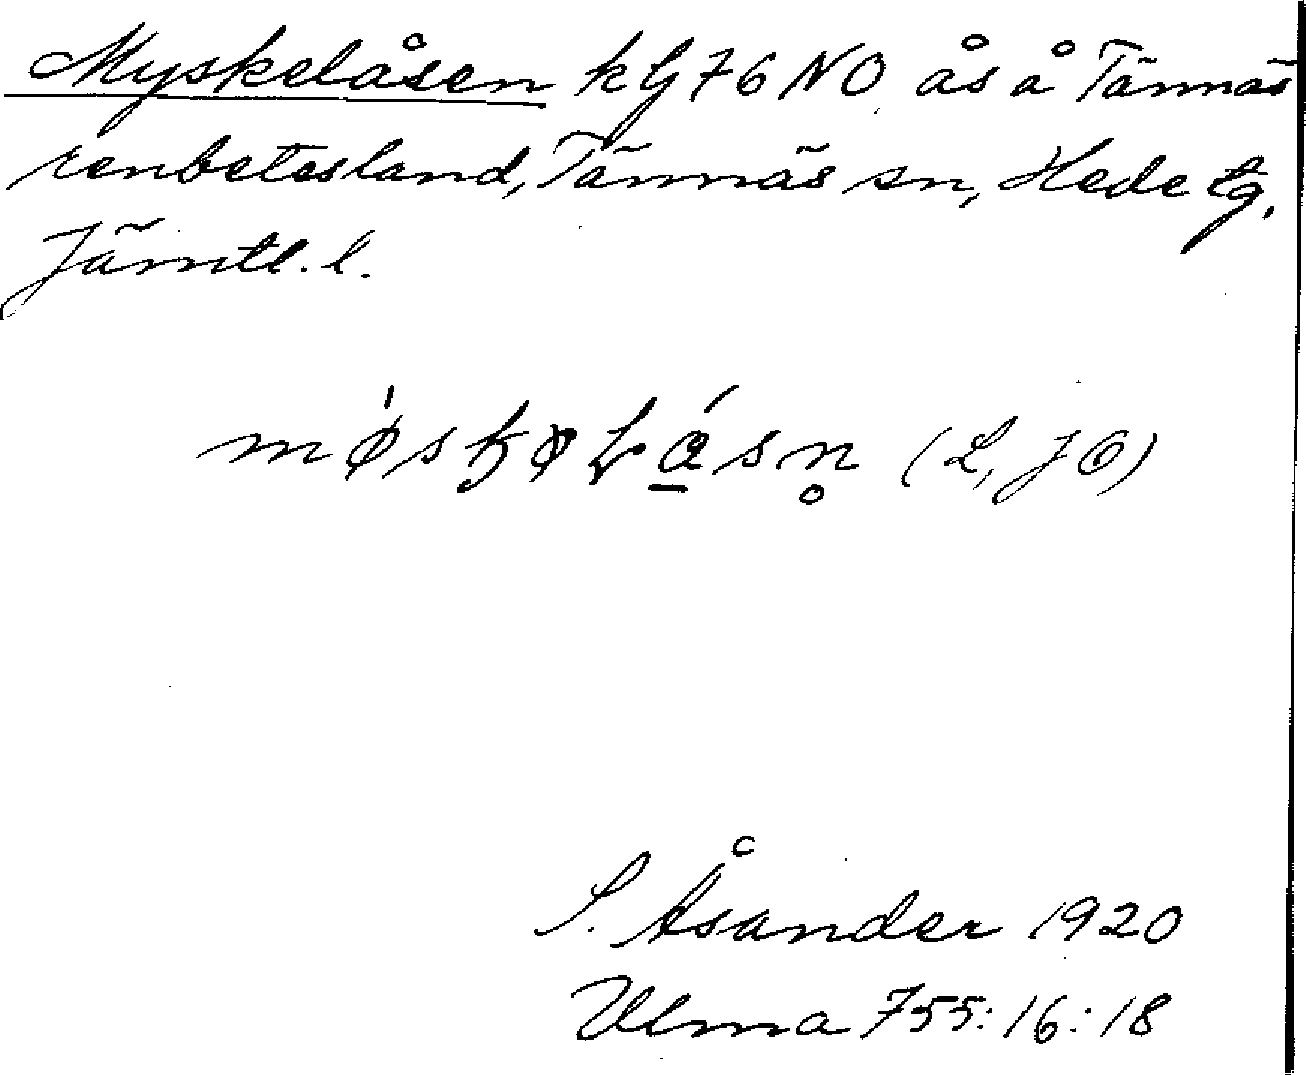 Myskelåsen kG76NO ås å Tännäs
renbetesland, Tännäs sn, Hede tg,
Jämtl. l.
(L, JÖ)
S. Åsander 1920
Ulma 755:16:18